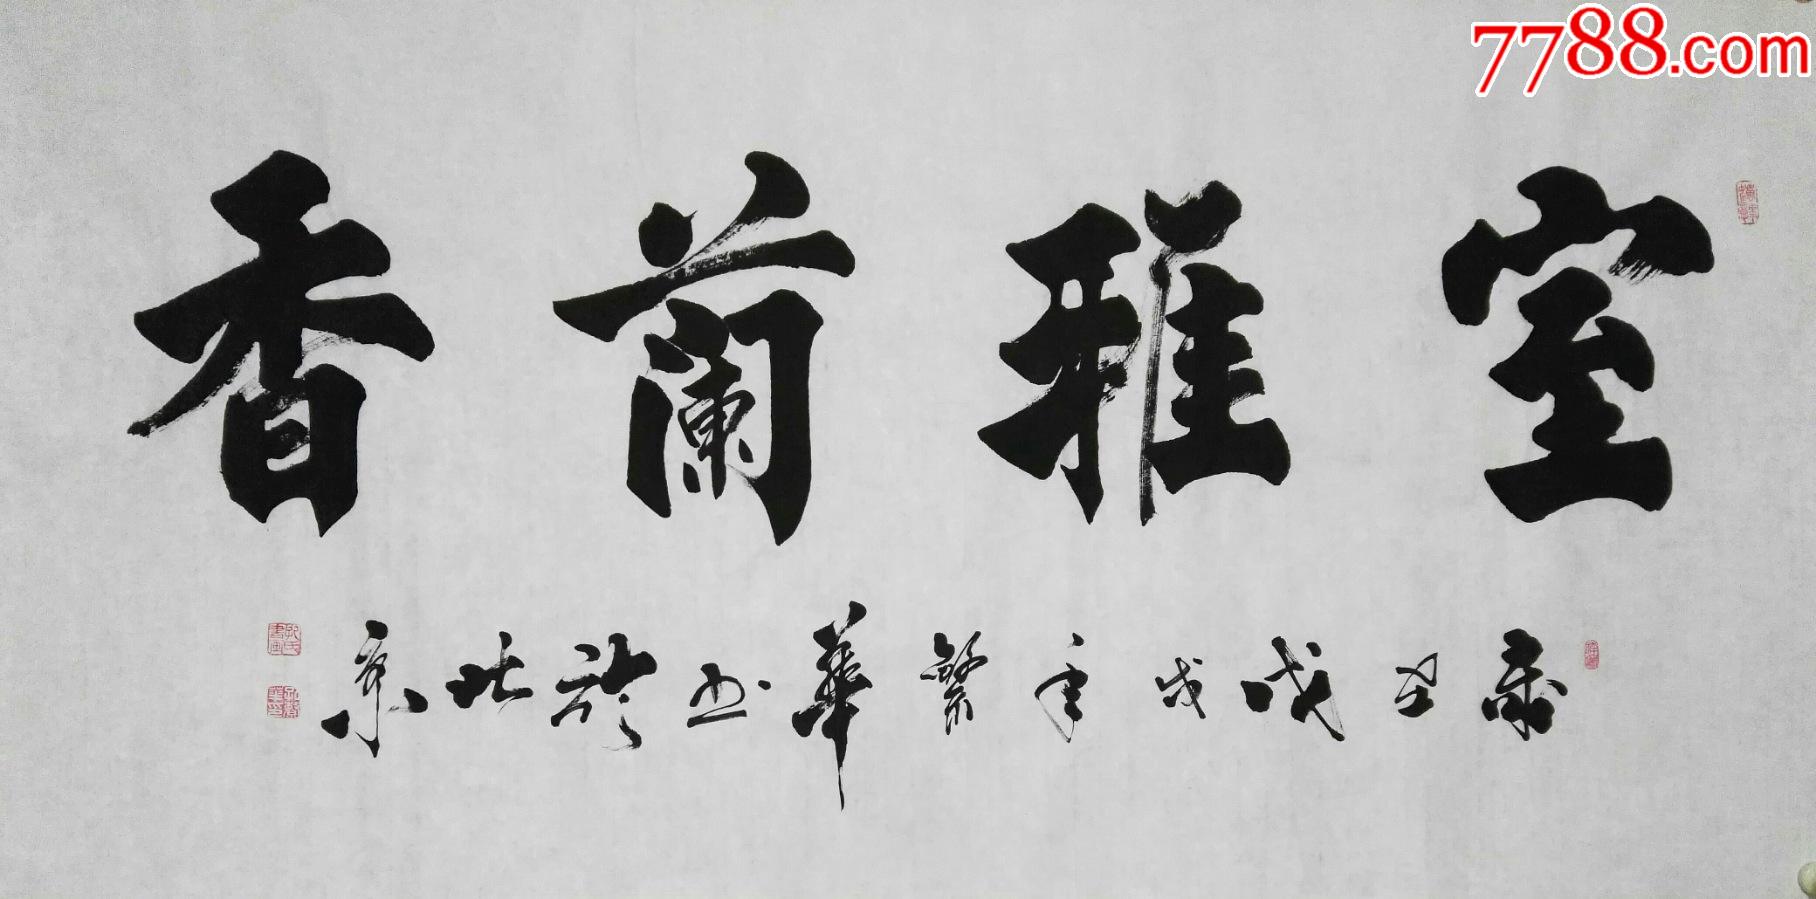 7788.com
室雅蘭香
歲在戊戌年繁華書於北京
孔氏書画